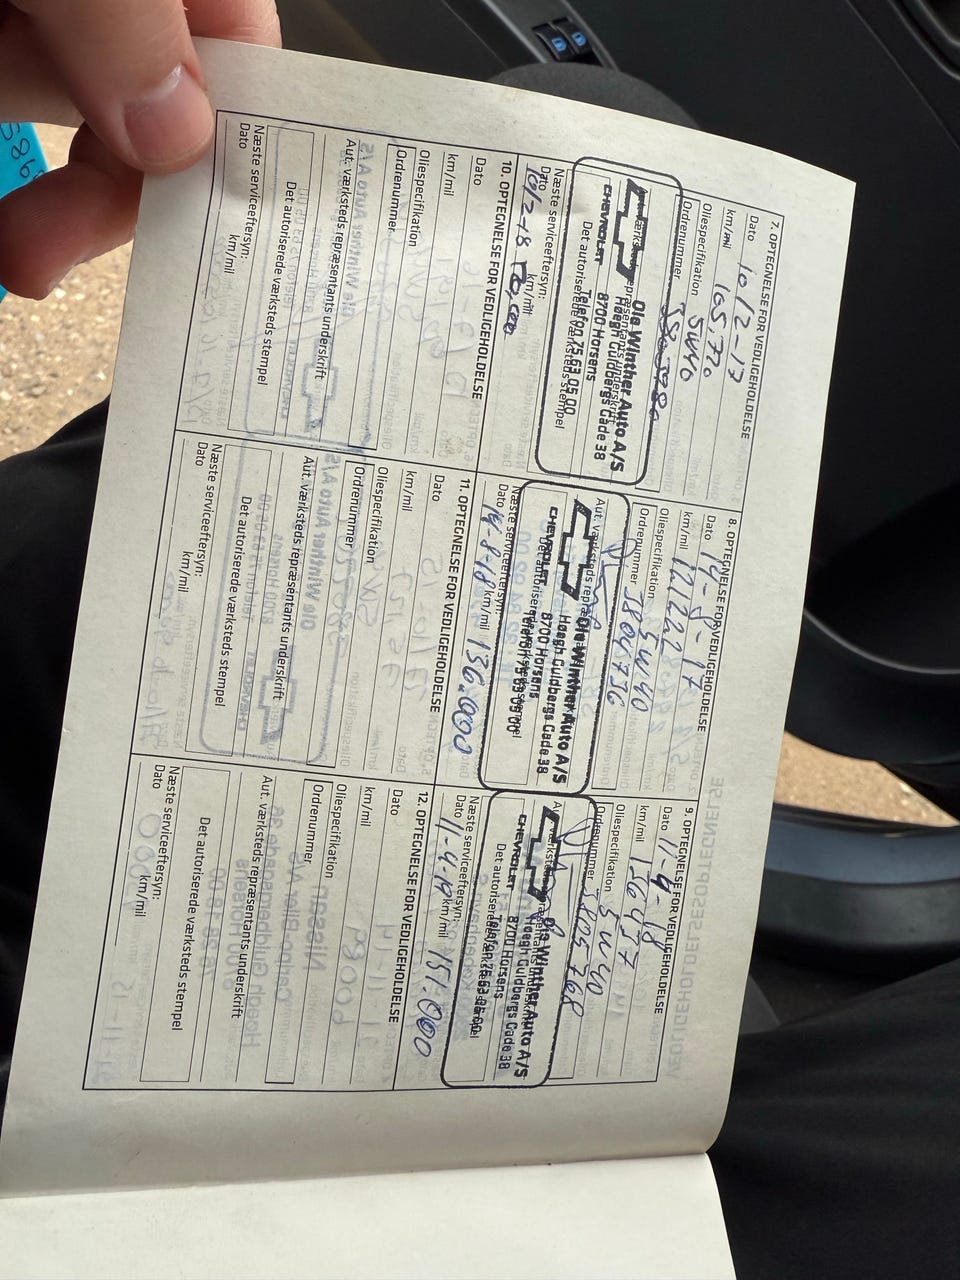 7. OPTEGNELSE FOR VEDLIGEHOLDELSE
Dato 10/2-17
km/mil 105,770
Oliespecifikation 5W40
Ordrenummer
Aut. værksteds repræsentants underskrift
Ole Winther Auto A/S
Høegh Guldbergs Gade 38
8700 Horsens
Telefon 75 63 05 00
CHEVROLET
Det autoriserede værksteds stempel
Næste serviceeftersyn:
Dato km/mil
10/2-18
8. OPTEGNELSE FOR VEDLIGEHOLDELSE
Dato 14-8-17
km/mil 121222
Oliespecifikation 5W40
Ordrenummer 3804756
Aut. værksteds repræsentants underskrift
Ole Winther Auto A/S
Høegh Guldbergs Gade 38
8700 Horsens
Telefon 75 63 05 00
CHEVROLET
Det autoriserede værksteds stempel
Næste serviceeftersyn:
Dato km/mil
14-8-18 136.000
9. OPTEGNELSE FOR VEDLIGEHOLDELSE
Dato 11-4-18
km/mil 136477
Oliespecifikation 5W40
Ordrenummer 3805768
Aut. værksteds repræsentants underskrift
Ole Winther Auto A/S
Høegh Guldbergs Gade 38
8700 Horsens
Telefon 75 63 05 00
CHEVROLET
Det autoriserede værksteds stempel
Næste serviceeftersyn:
Dato km/mil
11-4-19 151.000
10. OPTEGNELSE FOR VEDLIGEHOLDELSE
Dato
km/mil
Oliespecifikation
Ordrenummer
Aut. værksteds repræsentants underskrift
Det autoriserede værksteds stempel
Næste serviceeftersyn:
Dato km/mil
11. OPTEGNELSE FOR VEDLIGEHOLDELSE
Dato
km/mil
Oliespecifikation
Ordrenummer
Aut. værksteds repræsentants underskrift
Det autoriserede værksteds stempel
Næste serviceeftersyn:
Dato km/mil
12. OPTEGNELSE FOR VEDLIGEHOLDELSE
Dato
km/mil
Oliespecifikation
Ordrenummer
Aut. værksteds repræsentants underskrift
Det autoriserede værksteds stempel
Næste serviceeftersyn:
Dato km/mil